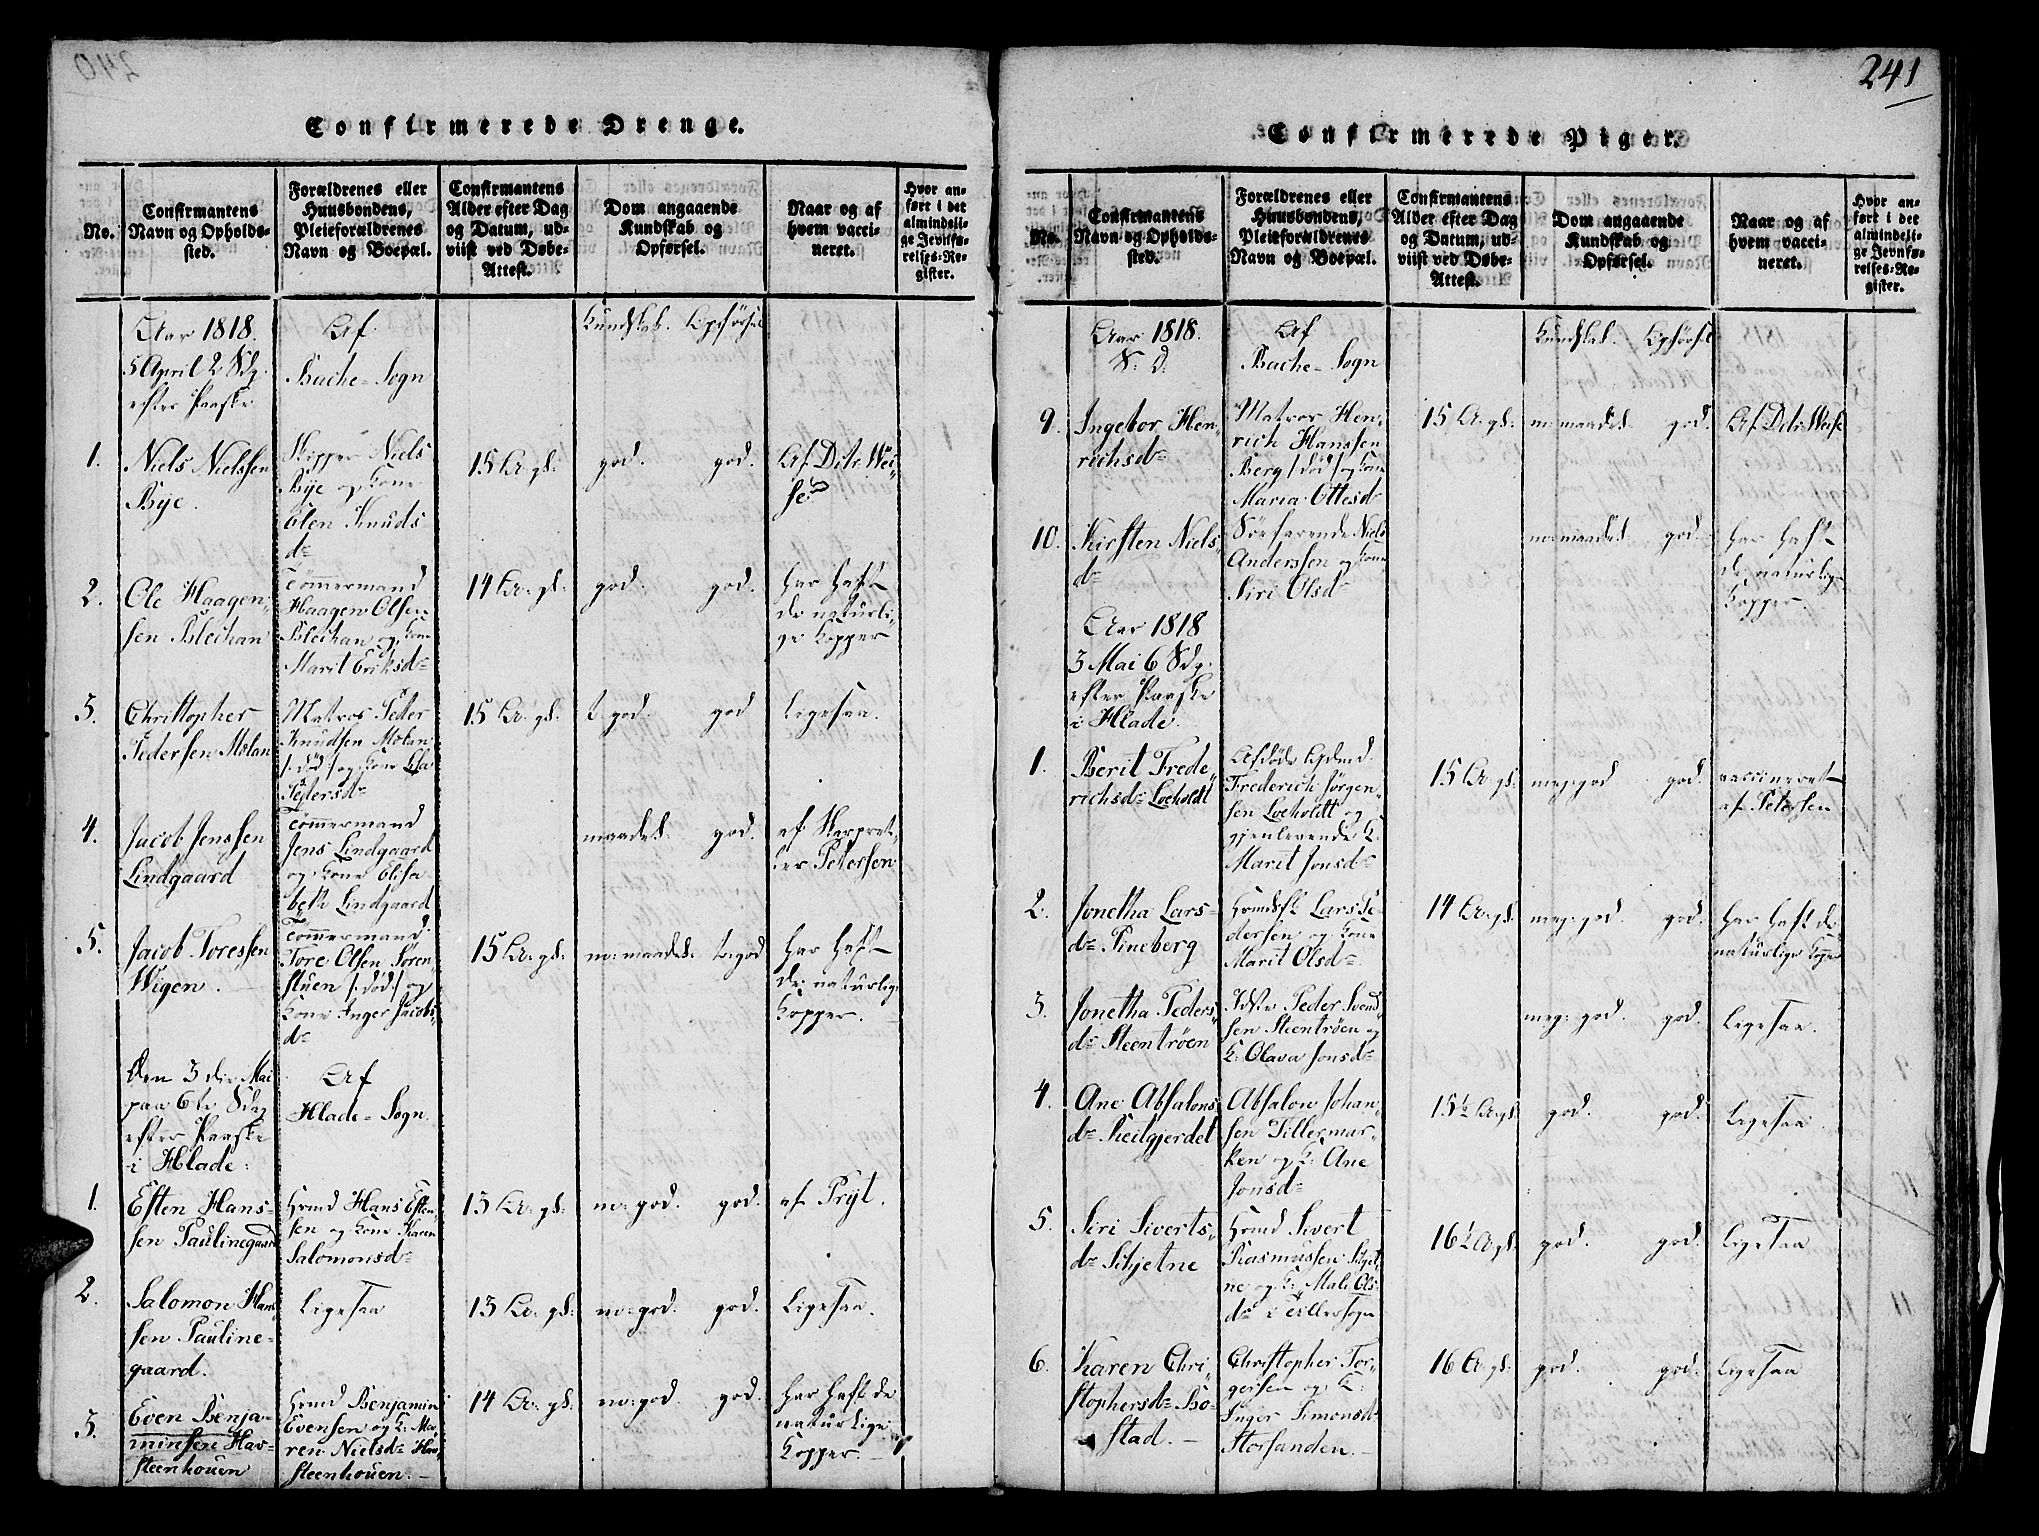 240
Confirmerede Drenge.
No.
Confirmantens
Navn og Opholds-
sted.
Forældrenes eller
Huusbondens,
Pleieforældrenes
Navn og Boepæl.
Confirmantens
Alder efter Dag
og Datum, ud-
viist ved Døbe-
Attest.
Dom angaaende
Kundskab og
Opførsel.
Naar og af
hvem vacci-
neret.
Hvor an-
ført i det
almindeli-
ge Jevnfø-
relses-Re-
gister.
Aar 1818.
5 April 2 Sdg.
efter Paaske
Af
Bache-Sogn
Kundskab. Opførsel
1.
Niels Nielssen
Bye.
Skipper Niels
Bye og Kone
Elen Knuds
dr
15 Aar gl:
god. god.
Af Dctr. Wei-
se.
2.
Ole Haagen-
sen Blechan
Tømmermand
Haagen Olsen
Blechan og Kone
Marit Eriksdr
14 Aar gl:
god. god.
har haft
de naturli-
ge Kopper
3.
Christopher
Pedersen Molan
Matros Peder
Knudsen Molan
/:død:/ og Kone
Pedersdr
15 Aar gl.
t. god. god
Ligesaa.
4.
Jacob Jenssen
Lindgaard
Tømmermand
Jens Lindgaard
og Kone Elisa
beth Lindgaard
maadel. god.
af Skarpret-
ter Petersen
5.
Jacob Toressen
Wigen.
Tømmermand
Tore Olsen Soren-
stuen /:død:/ og
Kone Inger Jacobs-
dr
15 Aar gl:
m: maadel. t. god
har haft
de naturlige
Kopper.
Den 3 die Mai
paa 6te Sdag
efter Paaske
i Hlade:
Af
Hlade-Sogn.
1.
Esten Hans-
sen Paulinegaard
Hmd Hans Esten-
sen og Kone Karen
Salomonsdr
13 Aar gl:
m: god. god.
af Pryt.
2.
Salomon Han-
sen Pauline-
gaard.
Ligesaa
13 Aar gl:
m: god. god.
Ligesaa.
3.
Even Benja-
minsen Hav-
steenhouen
Hmd Benjamin
Evensen og K: Ma-
ren Nielsdr Hav-
steenhouen.
14 Aar gl:
m: god god.
har haft de
naturlige
Kopper.
241
Confirmerede Piger.
No.
Confirmantens
Navn og Opholds-
sted.
Forældrenes eller
Huusbondens,
Pleieforældrenes
Navn og Boepæl.
Confirmantens
Alder efter Dag
og Datum, ud-
viist ved Døbe-
Attest.
Dom angaaende
Kundskab og
Opførsel.
Naar og af
hvem vacci-
neret.
Hvor an-
ført i det
almindeli-
ge Jevnfø-
relses-Re-
gister.
Aar 1818.
S. D.
Af
Bache-Sogn
Kundskab. Opførsel
9.
Ingebor Hen-
richsdr
Matros Hen-
rich Hanssen
Berg /:død:/ og Kone
Maria Ottesdr
15 A. gl.
m: maadel. god.
Af Dctr. Weise
10.
Kirsten Niels-
dr
Søefarende Niels
Anderssen og Kone
Siri Olsdr
m: maadel god.
har haft
de naturlige
Kopper.
Aar 1818
3 Mai 6 Sdg.
efter Paaske
i Hlade.
1.
Berit Frede-
richsdr Loeholdt
Afdøde
Frederich Jørgen-
sen Loeholdt og
gjenlevende K:
Marit Jonsdr
15 Aar gl.
meg: god god.
vaccineret
af Petersen
2.
Jonetha Lars-
dr Pineberg
Lars Pe-
dersen og Kone
Marit Olsdr.
14 Aar gl.
meg: god. god.
har haft de
naturlige Kopper
3.
Jonetha Peders-
dr Steentrøen
Peder Svend-
sen Steentrøen og
K: Olava Jonsdr
meg: god. god.
Ligesaa.
4.
Ane Absalons
dr Reitgjerdet
Absalon Johan-
sen Tillermar-
ken og K: Ane
Jonsdr
15½ Aar gl.
god. god.
Ligesaa.
5.
Siri Siverts-
dr Schjetne
Hmd Sivert
Rasmussen Skjet-
ne og K: Mali Ols
dr i Tillersogn
16½ A gl.
god. god.
Ligesaa
6.
Karen Chri-
stophersdr Bo-
stad.
Christopher Tor-
gersen og K:
Inger Simonsdr
Storsanden.
16 A. gl.
god. god.
Ligesaa